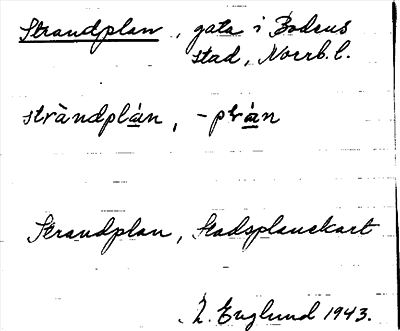 Strandplan, gata i Bodens
stad, Norrb. l.
stràndplán, -plán
Strandplan, Stadsplanekart
Englund 1943.